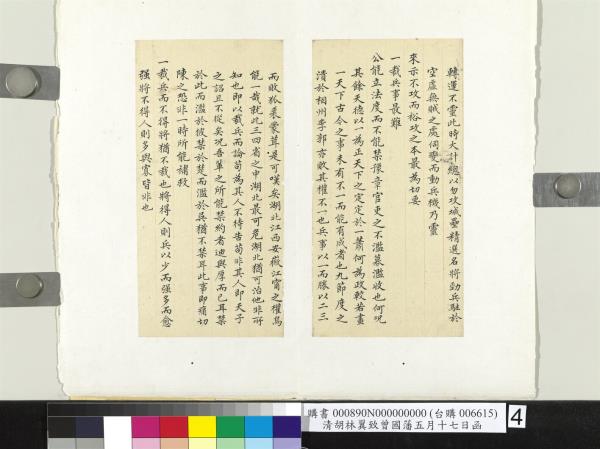 轉運不靈此時大計總以勿攻城壘精選名將勁兵駐於
空虛無賊之處伺更而動兵機乃靈
來示不攻而裕攻之本最為切要
一裁兵事最難
公能立法度而不能禁厥章官吏之不濫募濫收也何況
其餘天德以一為正天下之定定於一蕭何為政較若畫
一天下古今之事未有不一而能有成者也九節度之
潰於相州李郭亦敗其權不一也兵事以一而勝以二三
而敗狐裘蒙茸是可嘆矣湖北江西安徽江甯之權烏
能一哉就此三四省之中湖北最可危湖北猶可治他非所
知也即以裁兵而論苟為其人不待告苟非其人即天子
之詔且不從矣況吾輩之所能禁約者迪與厚而已耳禁
於此而濫於彼禁於楚而濫於吳猶不禁耳此事即痛切
陳之恐非一時所能補救
一裁兵而不得將猶不裁也將得人則兵以少而強多而愈
強將不得人則多與寡皆非也
購書 000890N000000000 (台購 006615)
清胡林翼致曾國藩五月十七日函
4